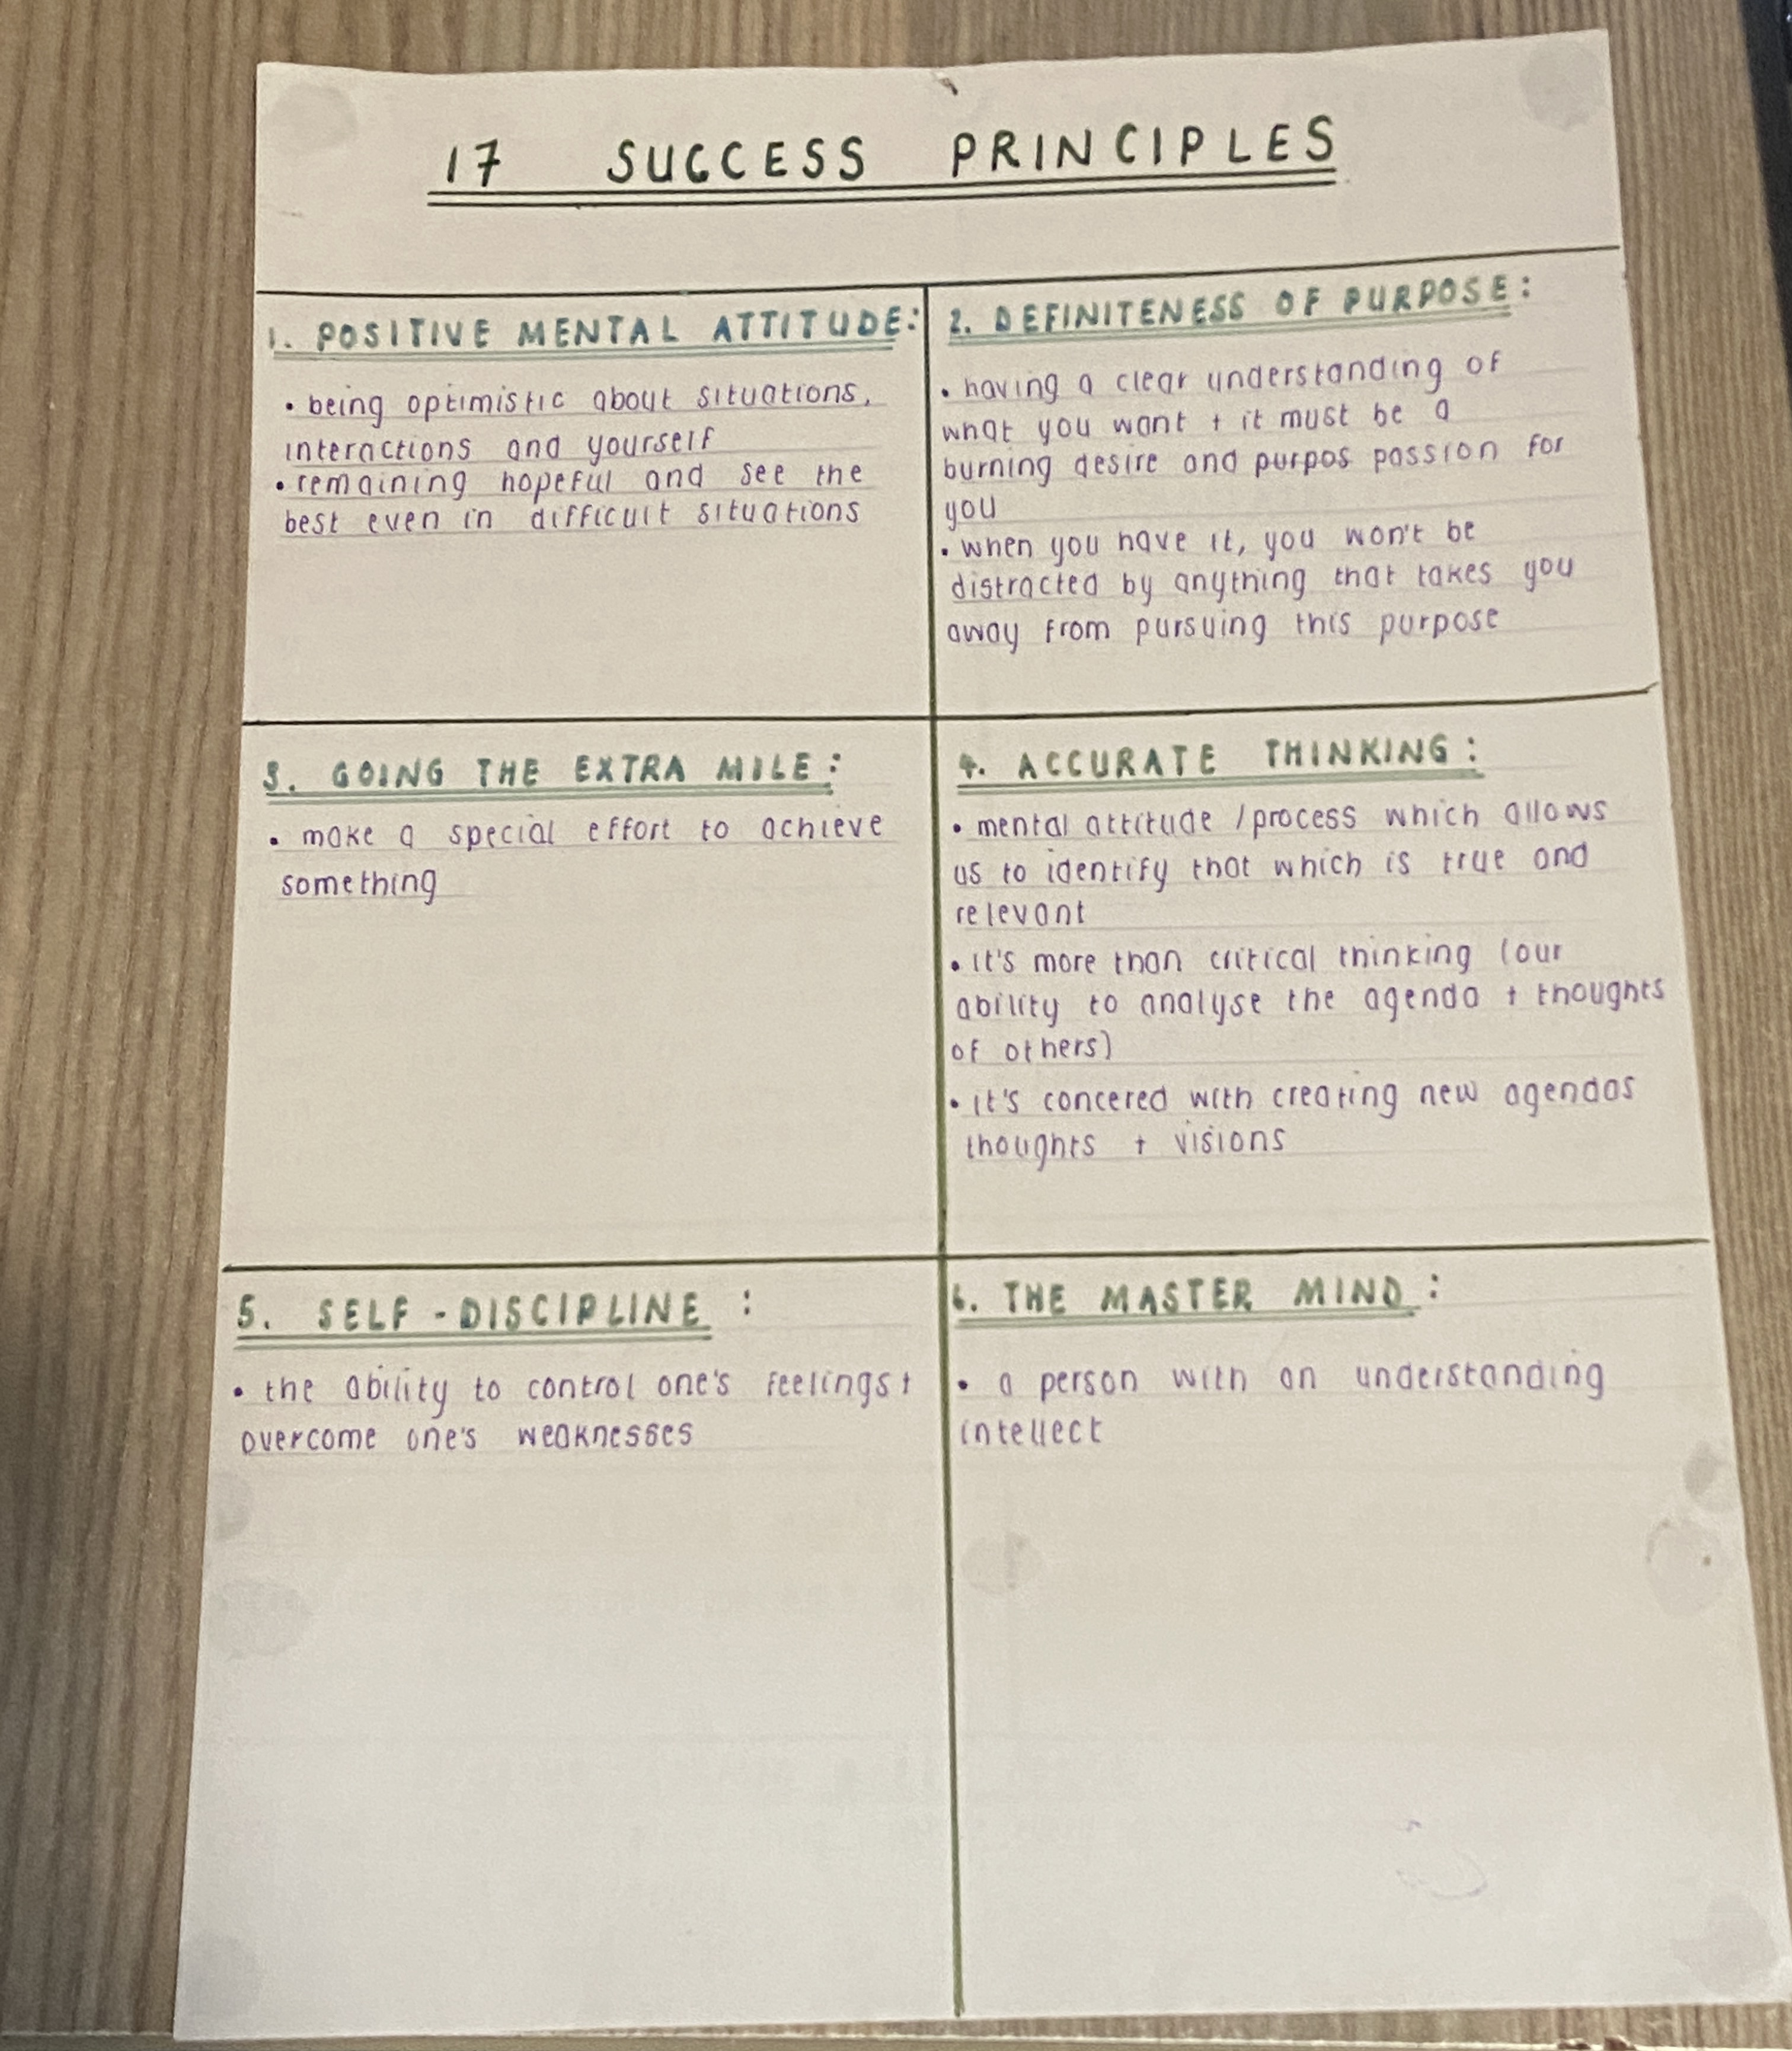 17 SUCCESS PRINCIPLES
1. POSITIVE MENTAL ATTITUDE:
• being optimistic about situations,
interactions and yourself
• remaining hopeful and see the
best even in difficult situations
2. DEFINITENESS OF PURPOSE:
• having a clear understanding of
what you want + it must be a
burning desire and purpos passion for
you
• when you have it, you won't be
distracted by anything that takes you
away from pursuing this purpose
3. GOING THE EXTRA MILE:
• make a special effort to achieve
something
4. ACCURATE THINKING:
• mental attitude / process which allows
us to identify that which is true and
relevant
• it's more than critical thinking (our
ability to analyse the agenda + thoughts
of others)
• it's concered with creating new agendas
thoughts + visions
5. SELF-DISCIPLINE :
• the ability to control one's feelings +
overcome one's weaknesses
6. THE MASTER MIND:
• a person with an understanding
intellect